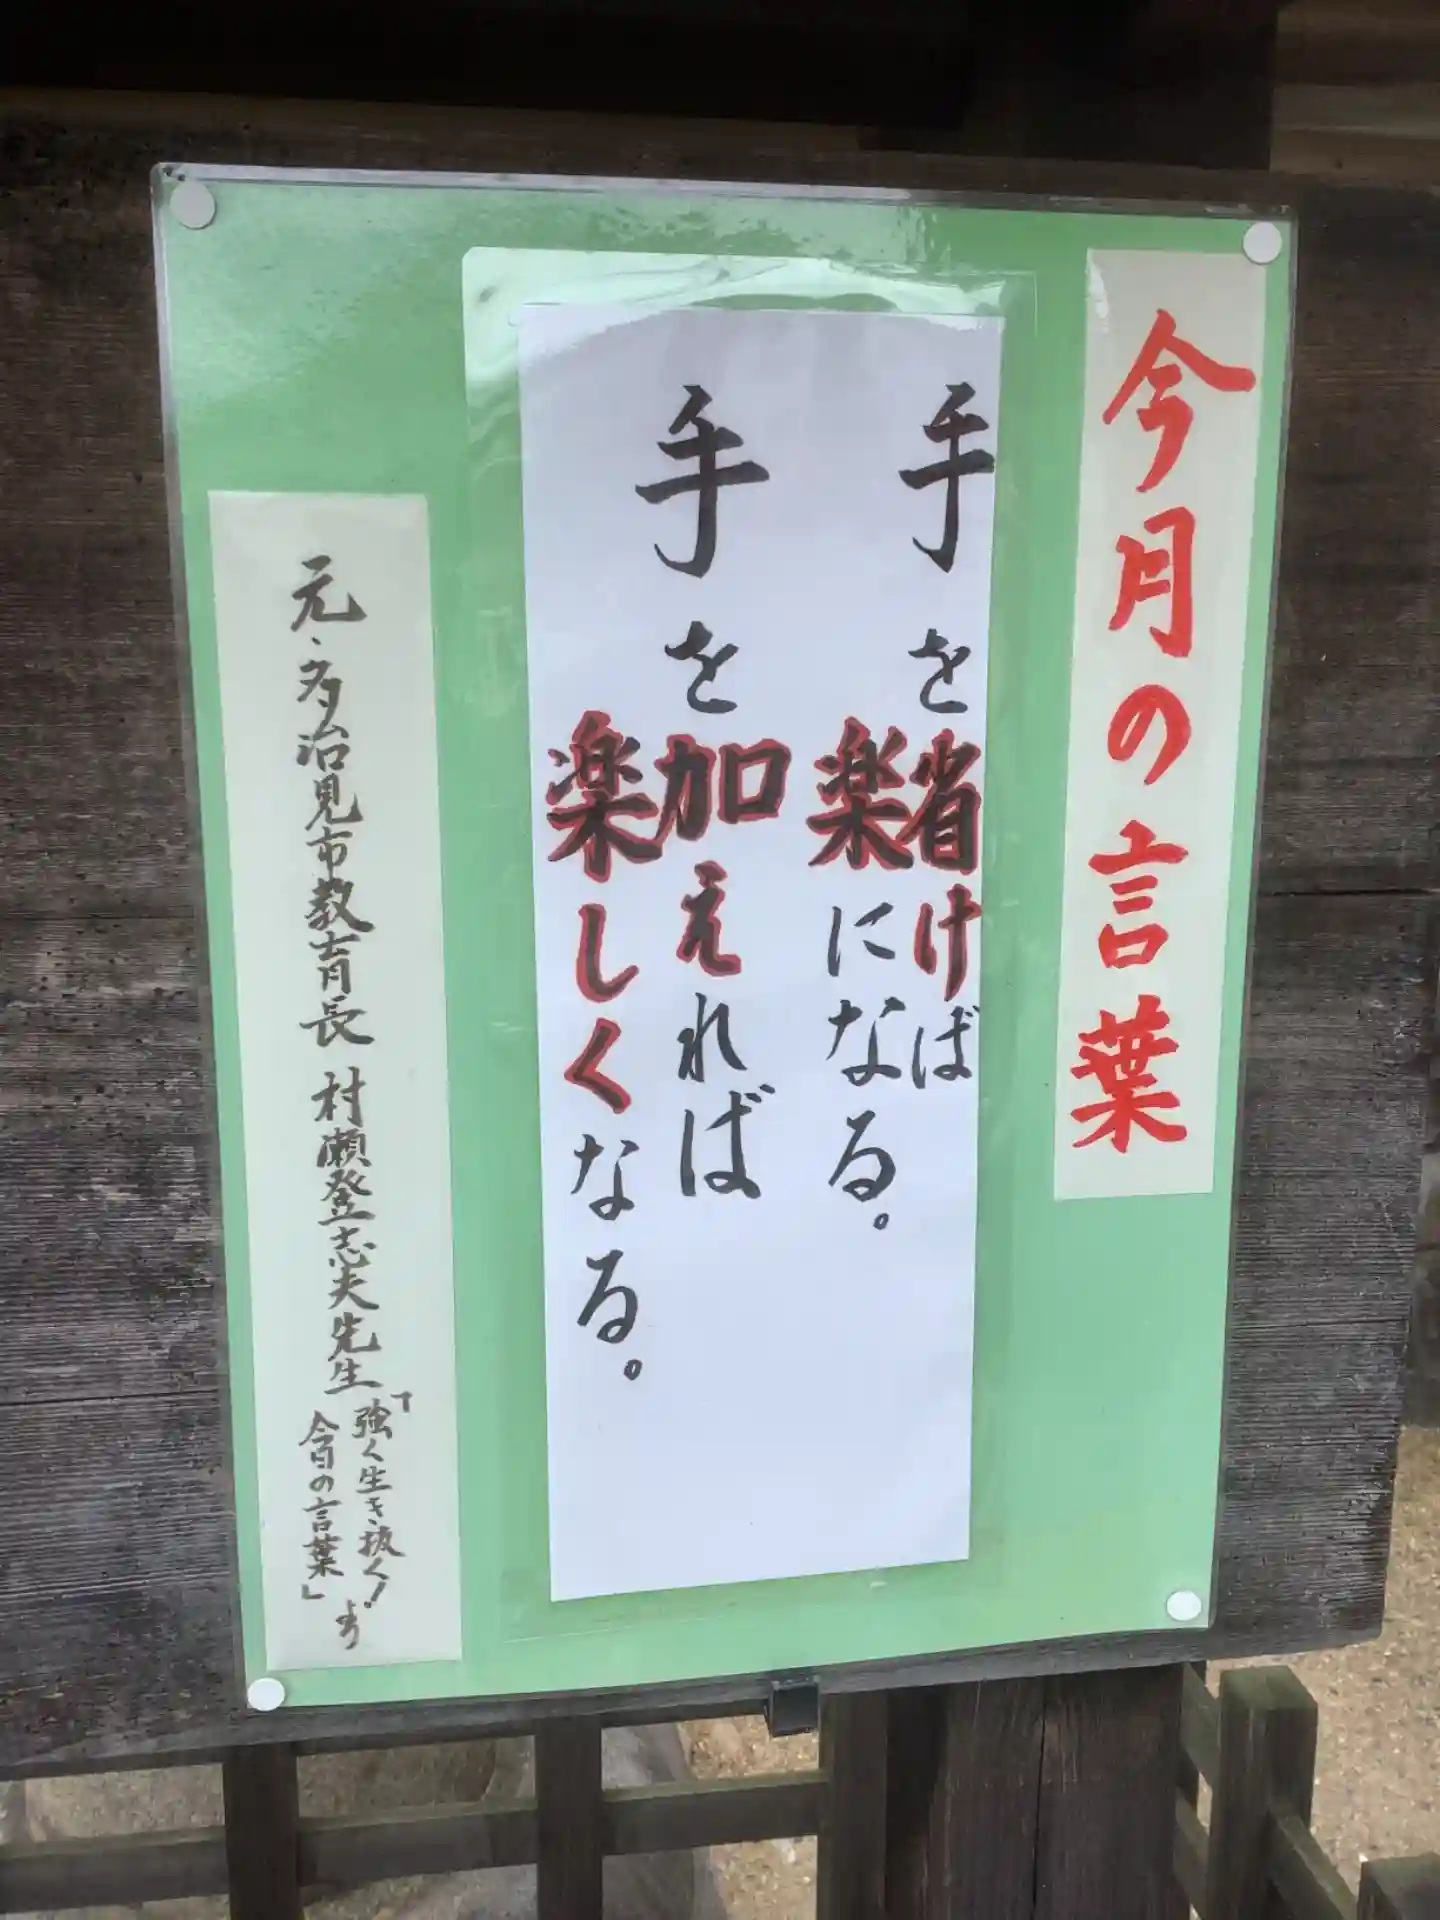 今月の言葉
手を省けば
楽になる。
手を加えれば
楽しくなる。
元、多治見市教育長 村瀬登志夫先生
「強く生き抜く!
今日の言葉」
より